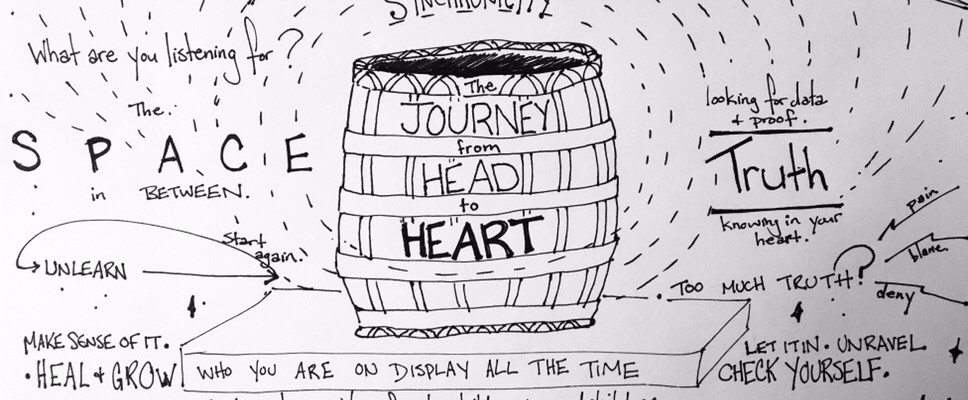 SYNCHRONICITY
What are you listening for?
The.
SPACE
in BETWEEN.
The
JOURNEY
from
HEAD
to
HEART
looking for data
+ proof.
Truth
knowing in your
heart.
Start
again.
UNLEARN
TOO MUCH TRUTH?
pain
blame
deny
MAKE SENSE OF IT.
• HEAL + GROW
WHO YOU ARE ON DISPLAY ALL THE TIME
LET IT IN • UNRAVEL
CHECK YOURSELF.